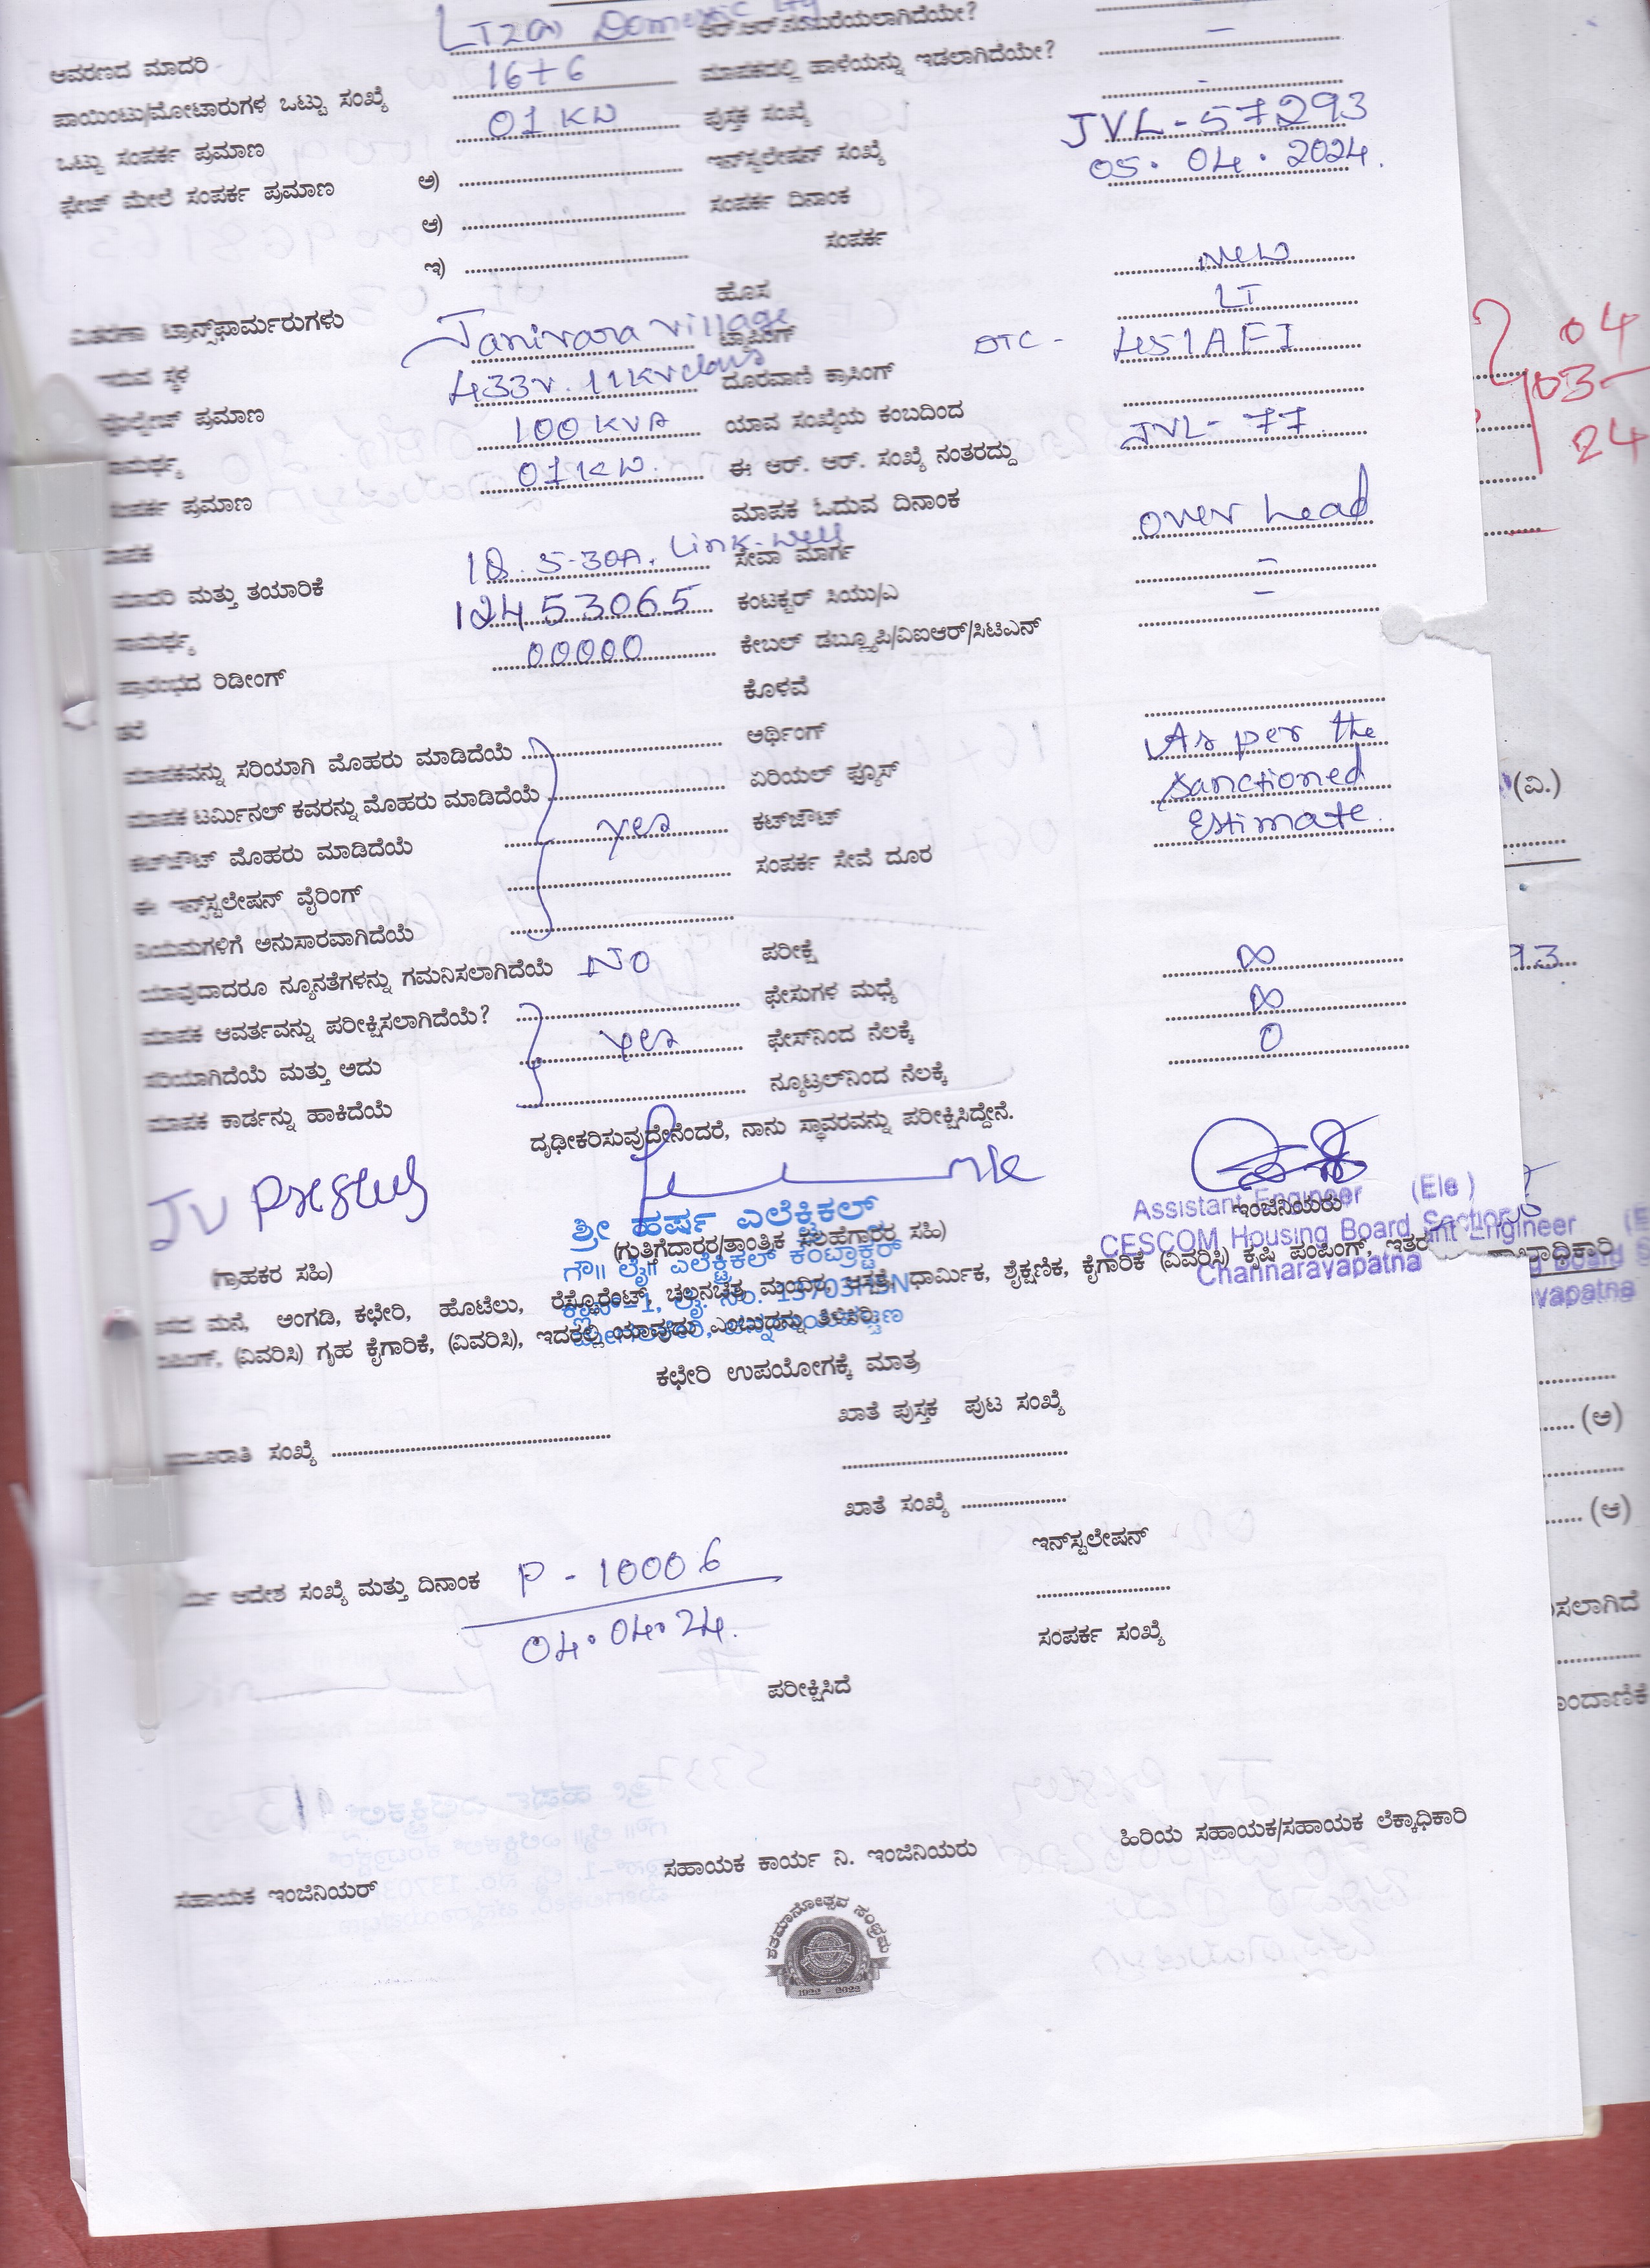 LT2(a) Domestic Ltg ಆರ್.ಆರ್.ನಮೂರೆಯಲಾಗಿದೆಯೇ?
ಆವರಣದ ಮಾದರಿ 16+6 ಮಾಪಕದಲ್ಲಿ ಹಾಳೆಯನ್ನು ಇಡಲಾಗಿದೆಯೇ? –
ಪಾಯಿಂಟು/ಮೋಟಾರುಗಳ ಒಟ್ಟು ಸಂಖ್ಯೆ 01 KW ಪುಸ್ತಕ ಸಂಖ್ಯೆ -
ಒಟ್ಟು ಸಂಪರ್ಕ ಪ್ರಮಾಣ ಇನ್‌ಸ್ಟಲೇಷನ್ ಸಂಖ್ಯೆ JVL-57293
ಫೇಜ್ ಮೇಲೆ ಸಂಪರ್ಕ ಪ್ರಮಾಣ ಅ) ಸಂಪರ್ಕ ದಿನಾಂಕ 05.04.2024.
ಆ) ಸಂಪರ್ಕ
ಇ) ಹೊಸ New
ವಿತರಣಾ ಟ್ರಾನ್ಸ್‌ಫಾರ್ಮರುಗಳು Janivara village ಟ್ಯಾಪಿಂಗ್ LT
ಇರುವ ಸ್ಥಳ 433v. 11KV class ದೂರವಾಣಿ ಕ್ರಾಸಿಂಗ್ DTC -
ವೋಲ್ಟೇಜ್ ಪ್ರಮಾಣ 100 KVA ಯಾವ ಸಂಖ್ಯೆಯ ಕಂಬದಿಂದ
ಸಾಮರ್ಥ್ಯ 01KW. ಈ ಆರ್. ಆರ್. ಸಂಖ್ಯೆ ನಂತರದ್ದು JVL- 77
ಸಂಪರ್ಕ ಪ್ರಮಾಣ ಮಾಪಕ ಓದುವ ದಿನಾಂಕ
ಮಾಪಕ 5-30A. Link-well ಸೇವಾ ಮಾರ್ಗ over head
ಮಾದರಿ ಮತ್ತು ತಯಾರಿಕೆ 12453065 ಕಂಟಕ್ಟರ್ ಸಿಯು/ಎ –
ಸಾಮರ್ಥ್ಯ 00000 ಕೇಬಲ್ ಡಬ್ಲ್ಯೂಪಿ/ವಿಐಆರ್/ಸಿಟಿಎಸ್ –
ಪ್ರಾರಂಭದ ರಿಡೀಂಗ್ ಕೊಳವೆ
ತನೆ ಅರ್ಥಿಂಗ್
ಮಾಪಕವನ್ನು ಸರಿಯಾಗಿ ಮೊಹರು ಮಾಡಿದೆಯೆ ಏರಿಯಲ್ ಫ್ಯೂಸ್ As per the
ಮಾಪಕ ಟರ್ಮಿನಲ್ ಕವರನ್ನು ಮೊಹರು ಮಾಡಿದೆಯೆ ಕಟ್‌ಔಟ್ sanctioned
ಕಟ್‌ಔಟ್ ಮೊಹರು ಮಾಡಿದೆಯೆ yes ಸಂಪರ್ಕ ಸೇವೆ ದೂರ Estimate.
ಈ ಇನ್ಸ್‌ಸ್ಟಲೇಷನ್ ವೈರಿಂಗ್
ನಿಯಮಗಳಿಗೆ ಅನುಸಾರವಾಗಿದೆಯೆ
ಯಾವುದಾದರೂ ನ್ಯೂನತೆಗಳನ್ನು ಗಮನಿಸಲಾಗಿದೆಯೆ NO ಪರೀಕ್ಷೆ
ಮಾಪಕ ಆವರ್ತವನ್ನು ಪರೀಕ್ಷಿಸಲಾಗಿದೆಯೆ? ಫೇಸುಗಳ ಮಧ್ಯೆ ∞
ಸರಿಯಾಗಿದೆಯೆ ಮತ್ತು ಅದು yes ಫೇಸ್‌ನಿಂದ ನೆಲಕ್ಕೆ ∞
ಮಾಪಕ ಕಾರ್ಡನ್ನು ಹಾಕಿದೆಯೆ ನ್ಯೂಟ್ರಲ್‌ನಿಂದ ನೆಲಕ್ಕೆ 0
ದೃಢೀಕರಿಸುವುದೇನೆಂದರೆ, ನಾನು ಸ್ಥಾವರವನ್ನು ಪರೀಕ್ಷಿಸಿದ್ದೇನೆ.
ಶ್ರೀ ಹರ್ಷ ಎಲೆಕ್ಟ್ರಿಕಲ್
(ಗುತ್ತಿಗೆದಾರರ/ತಾಂತ್ರಿಕ ಸಲಹೆಗಾರರ ಸಹಿ)
Assistant Engineer (Ele)
ಇಂಜಿನಿಯರು
CESCOM Housing Board Section
Channarayapatna
(ಗ್ರಾಹಕರ ಸಹಿ)
ಮನೆ, ಅಂಗಡಿ, ಕಛೇರಿ, ಹೊಟೆಲು, ರೆಸ್ಟೊರೆಂಟ್, ಚಲನಚಿತ್ರ ಮಂದಿರ, ಆಸ್ಪತ್ರೆ, ಧಾರ್ಮಿಕ, ಶೈಕ್ಷಣಿಕ, ಕೈಗಾರಿಕೆ (ವಿವರಿಸಿ) ಕೃಷಿ ಪಂಪಿಂಗ್, ಇತರ
(ವಿವರಿಸಿ) ಗೃಹ ಕೈಗಾರಿಕೆ, (ವಿವರಿಸಿ), ಇದರಲ್ಲಿ ಯಾವುದು ಎಂಬುದನ್ನು ತಿಳಿಸಿರಿ.
ಕಛೇರಿ ಉಪಯೋಗಕ್ಕೆ ಮಾತ್ರ
ಖಾತೆ ಪುಸ್ತಕ ಪುಟ ಸಂಖ್ಯೆ
ಸಂಖ್ಯೆ
ಖಾತೆ ಸಂಖ್ಯೆ
ಇನ್‌ಸ್ಟಲೇಷನ್
ಆದೇಶ ಸಂಖ್ಯೆ ಮತ್ತು ದಿನಾಂಕ P - 10006
04.04.24.
ಸಂಪರ್ಕ ಸಂಖ್ಯೆ
ಪರೀಕ್ಷಿಸಿದೆ
ಸಹಾಯಕ ಇಂಜಿನಿಯರ್ ಸಹಾಯಕ ಕಾರ್ಯ ನಿ. ಇಂಜಿನಿಯರು ಹಿರಿಯ ಸಹಾಯಕ/ಸಹಾಯಕ ಲೆಕ್ಕಾಧಿಕಾರಿ
ಶತಮಾನೋತ್ಸವ ಸಂಭ್ರಮ
1922 - 2022
04
03
24
(ವಿ.)
93
(ಅ)
(ಆ)